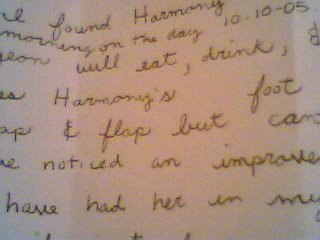 found Harmony
morning on the day 10-10-05
will eat, drink, &
Harmony's foot
& flap but can
noticed an improve
have had her in my